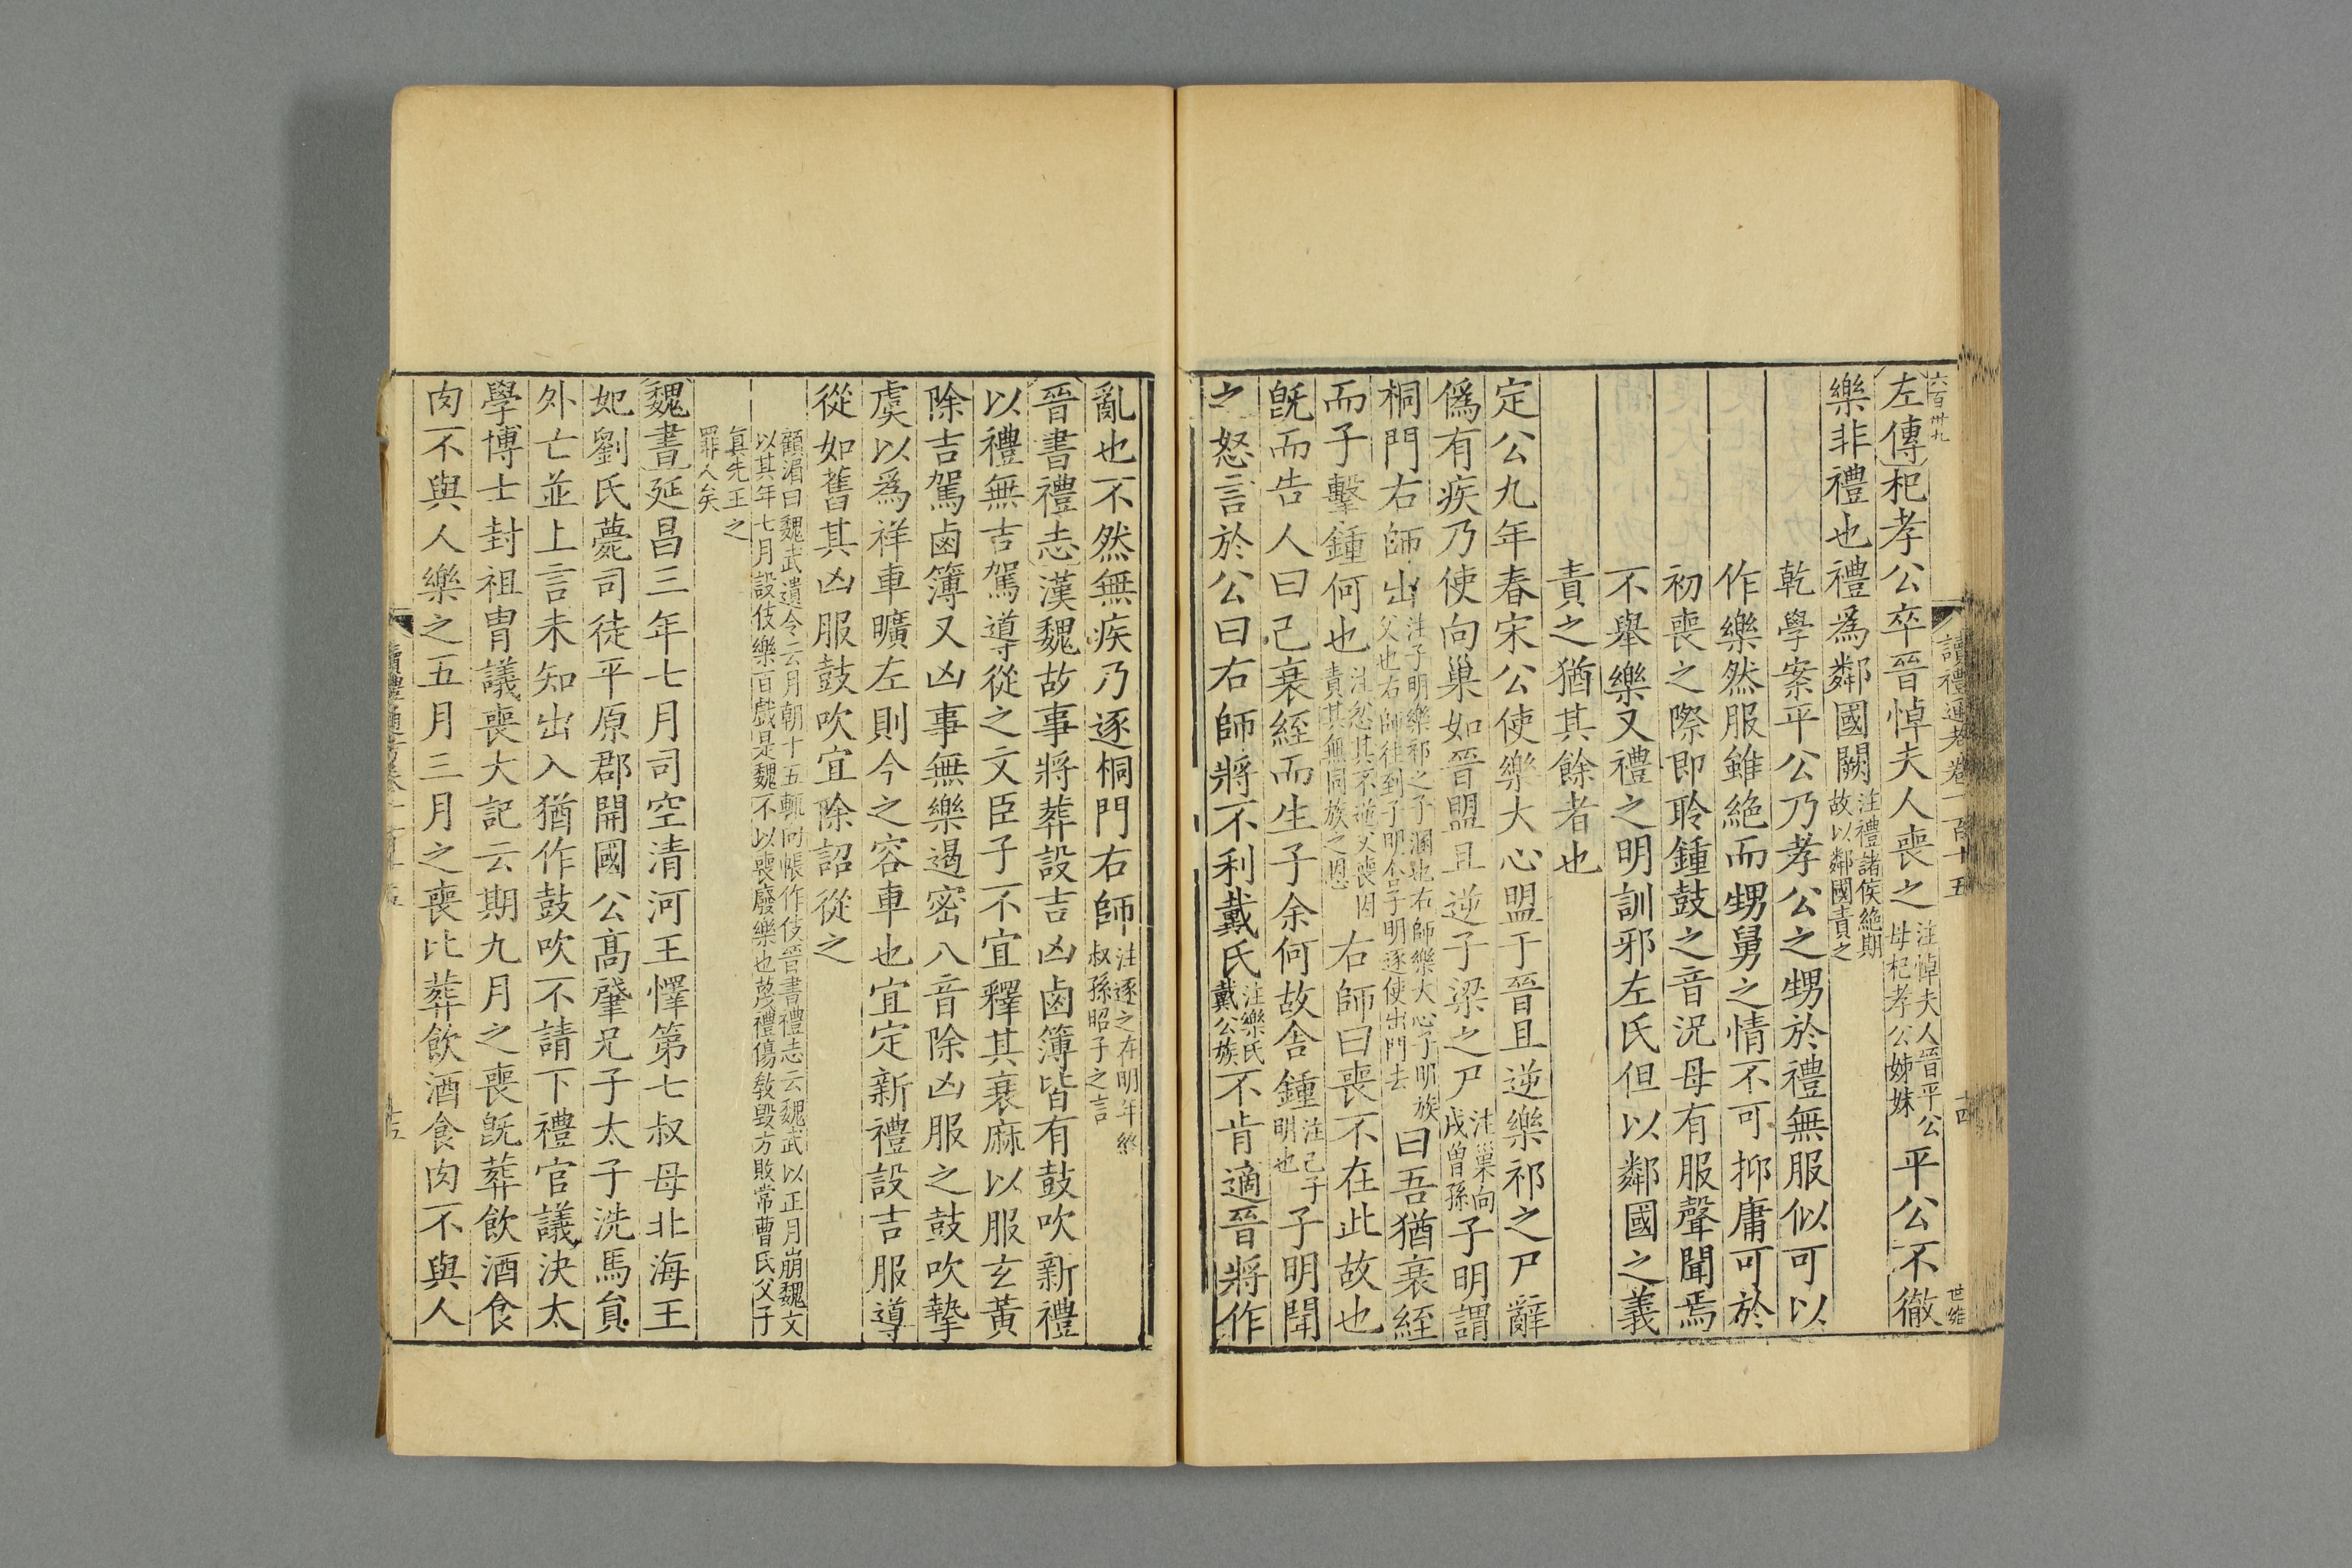 六百卅九
讀禮通考卷一百十五
十四
世維
左傳杞孝公卒晉悼夫人喪之注悼夫人晉平公母杞孝公姊妹平公不徹
樂非禮也禮爲鄰國闕注禮諸侯絶期故以鄰國責之
乾學案平公乃孝公之甥於禮無服似可以
作樂然服雖絶而甥舅之情不可抑庸可於
初喪之際即聆鍾鼓之音況母有服聲聞焉
不舉樂又禮之明訓邪左氏但以鄰國之義
責之猶其餘者也
定公九年春宋公使樂大心盟于晉且逆樂祁之尸辭
僞有疾乃使向巢如晉盟且逆子梁之尸注巢向戌曾孫子明謂
桐門右師出注子明樂祁之子溷也右師樂大心子明族父也右師往到子明舍子明逐使出門去曰吾猶衰絰
而子擊鍾何也注忿其不逆父喪因責其無同族之恩右師曰喪不在此故也
旣而告人曰己衰絰而生子余何故舍鍾注己子明也子明聞
之怒言於公曰右師將不利戴氏注樂氏戴公族不肯適晉將作
亂也不然無疾乃逐桐門右師注逐之在明年終叔孫昭子之言
晉書禮志漢魏故事將葬設吉凶鹵簿皆有鼓吹新禮
以禮無吉駕導從之文臣子不宜釋其衰麻以服玄黃
除吉駕鹵簿又凶事無樂遏密八音除凶服之鼓吹摯
虞以爲祥車曠左則今之容車也宜定新禮設吉服導
從如舊其凶服鼓吹宜除詔從之
顧湄曰魏武遺令云月朝十五輒向帳作伎晉書禮志云魏武以正月崩魏文
以其年七月設伎樂百戲是魏不以喪廢樂也蔑禮傷敎毀方敗常曹氏父子
眞先王之
罪人矣
魏書延昌三年七月司空清河王懌第七叔母北海王
妃劉氏薨司徒平原郡開國公高肇兄子太子洗馬員
外亡並上言未知出入猶作鼓吹不請下禮官議決太
學博士封祖胄議喪大記云期九月之喪旣葬飮酒食
肉不與人樂之五月三月之喪比葬飮酒食肉不與人